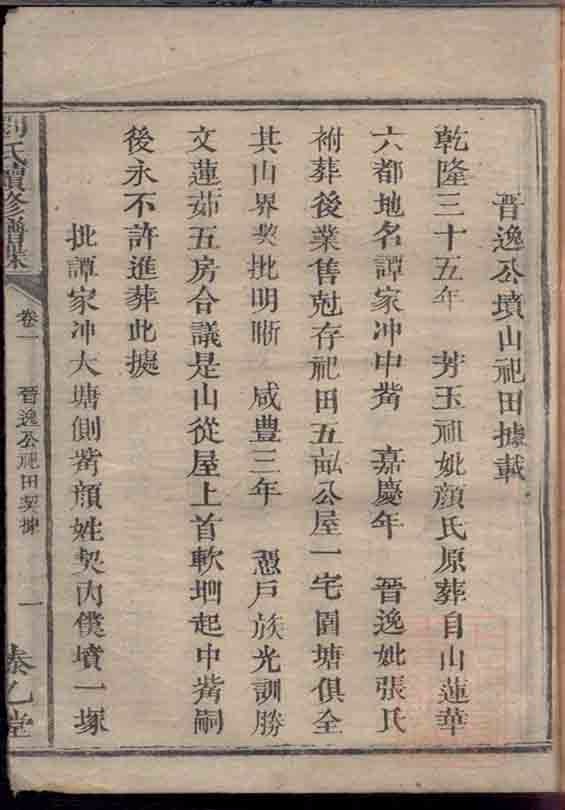 晉逸公墳山祀田據載
乾隆三十五年 芳玉祖妣顏氏原葬自山蓮華
六都地名譚家冲中嘴 嘉慶年 晉逸妣張氏
祔葬後業售尅存祀田五畝公屋一宅圍塘俱全
其山界契批明晰 咸豐三年 憑戶族光訓勝
文蓮茹五房合議是山從屋上首軟坳起中嘴嗣
後永不許進葬此據
批譚家冲大塘側嘴顏姓契內僕墳一塚
氏續修譜牒
卷一 晉逸公祀田契據 一
泰乙堂